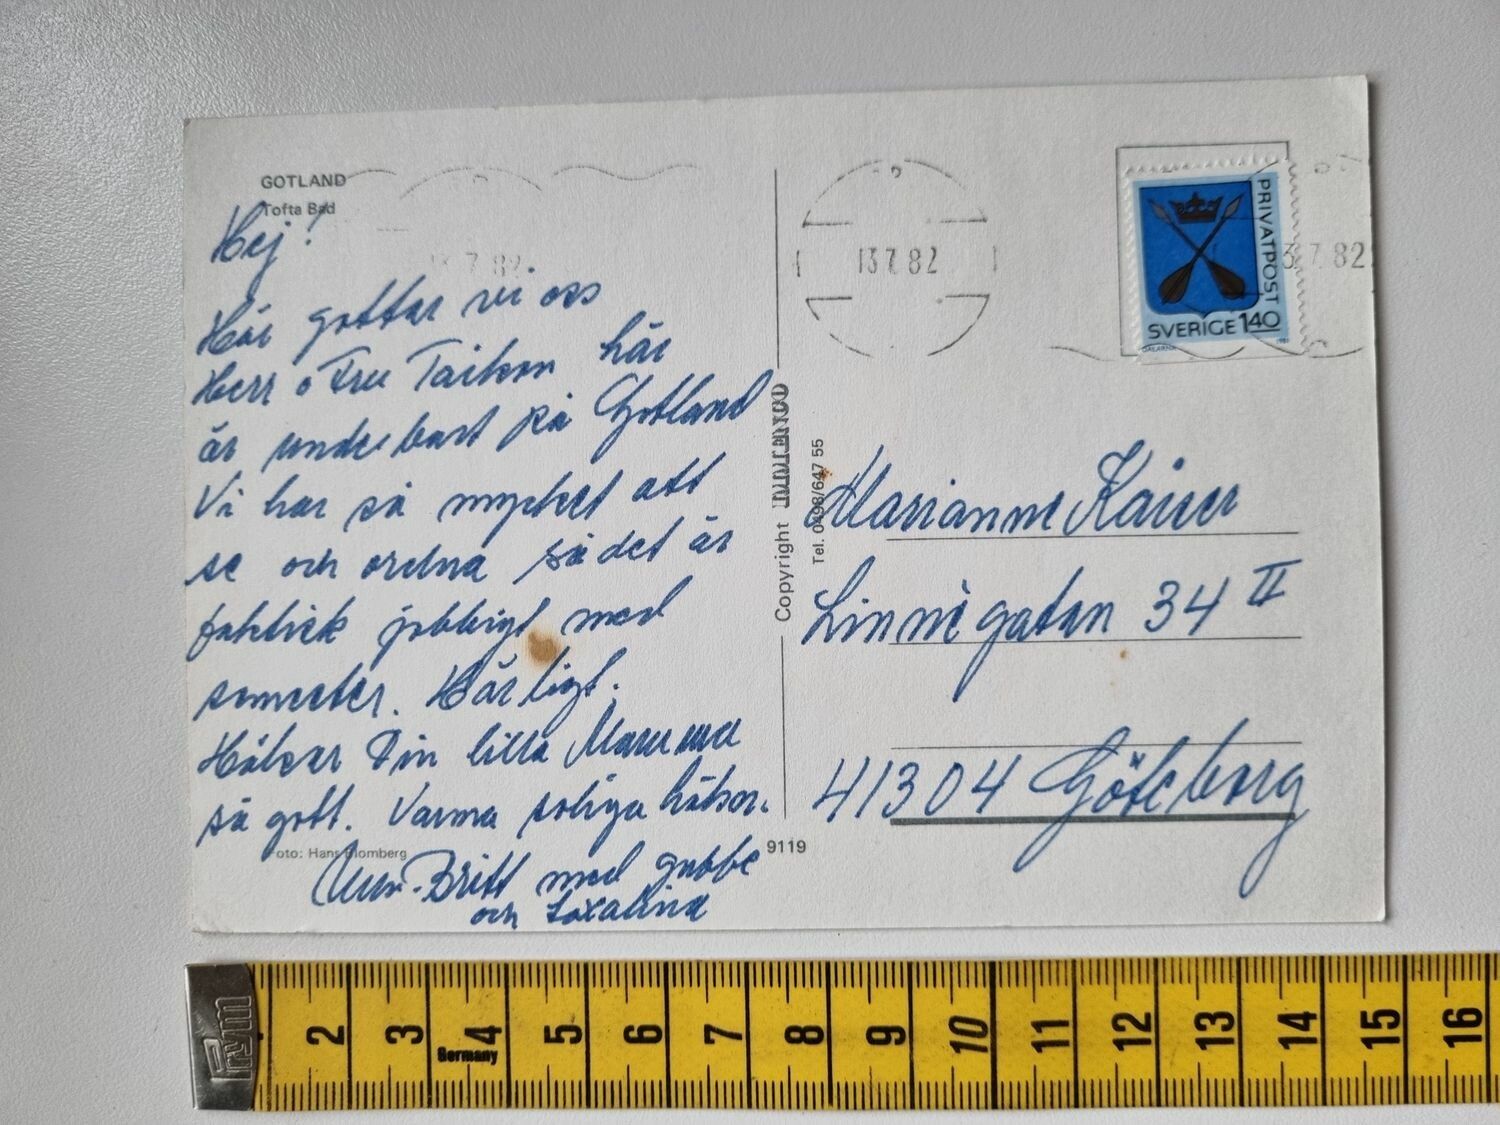 GOTLAND
Tofta Bad
Hej!
Här gottar vi oss
Herr o Fru Taikon här
är underbart på Gotland
Vi har så mycket att
se och ordna så det är
faktisk jobbigt med
semester. Härligt.
Hälsar Din lilla Mamma
så gott. Varma soliga hälsn.
Foto: Hans Blomberg
Ann-Britt med gubbe
och
13 7 82
13 7 82
3 7 82
PRIVATPOST
SVERIGE 140
DALARNA
Copyright
Tel. 0498/647 55
9119
Marianne
Linnégatan 34 II
41304 Göteborg
Prym
Germany
2 3 4 5 6 7 8 9 10 11 12 13 14 15 16